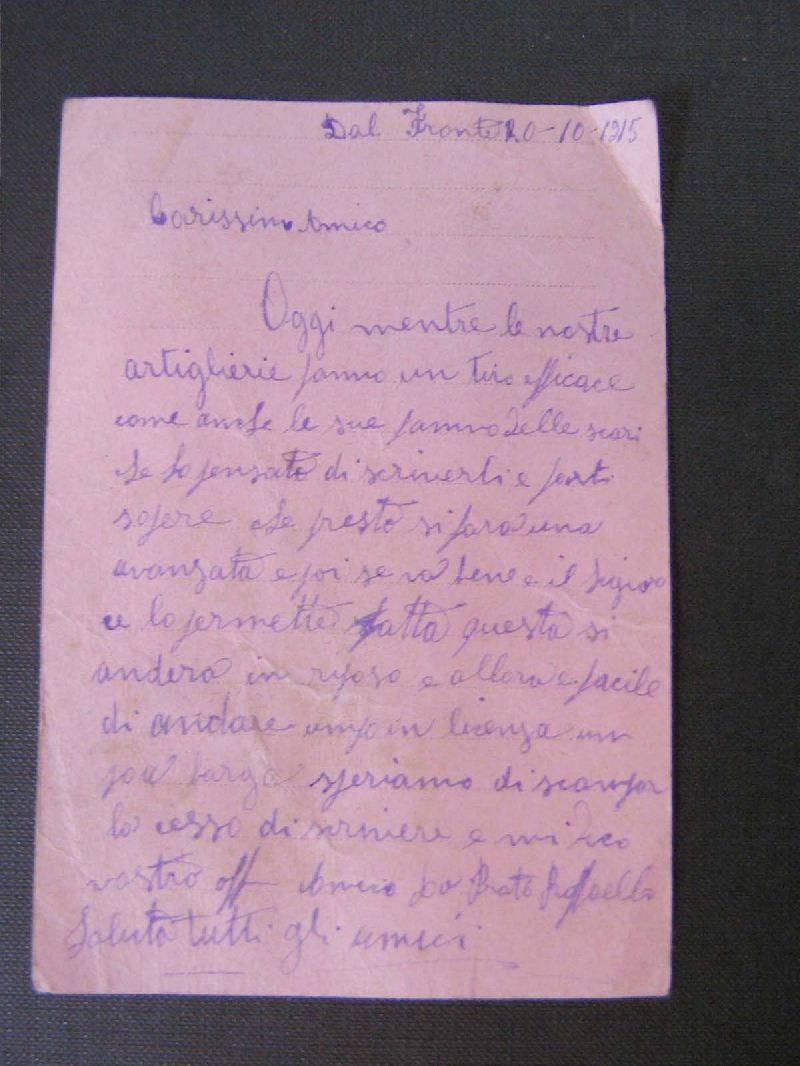 Dal Fronte 20-10-1915
Carissimo Amico
Oggi mentre le nostre
artiglierie fanno un tiro efficace
come anche le sue fanno delle scari
che ho pensato di scriverti e farti
sapere che presto si fara una
avanzata e poi se va bene e il Signo
ce lo permette fatta questa si
andera in riposo e allora e facile
di andare in licenza un
poca larga speriamo di scampar
la cesso di scrivere e mi dico
vostro aff Amico Da Prato Raffaello
Saluta tutti gli amici